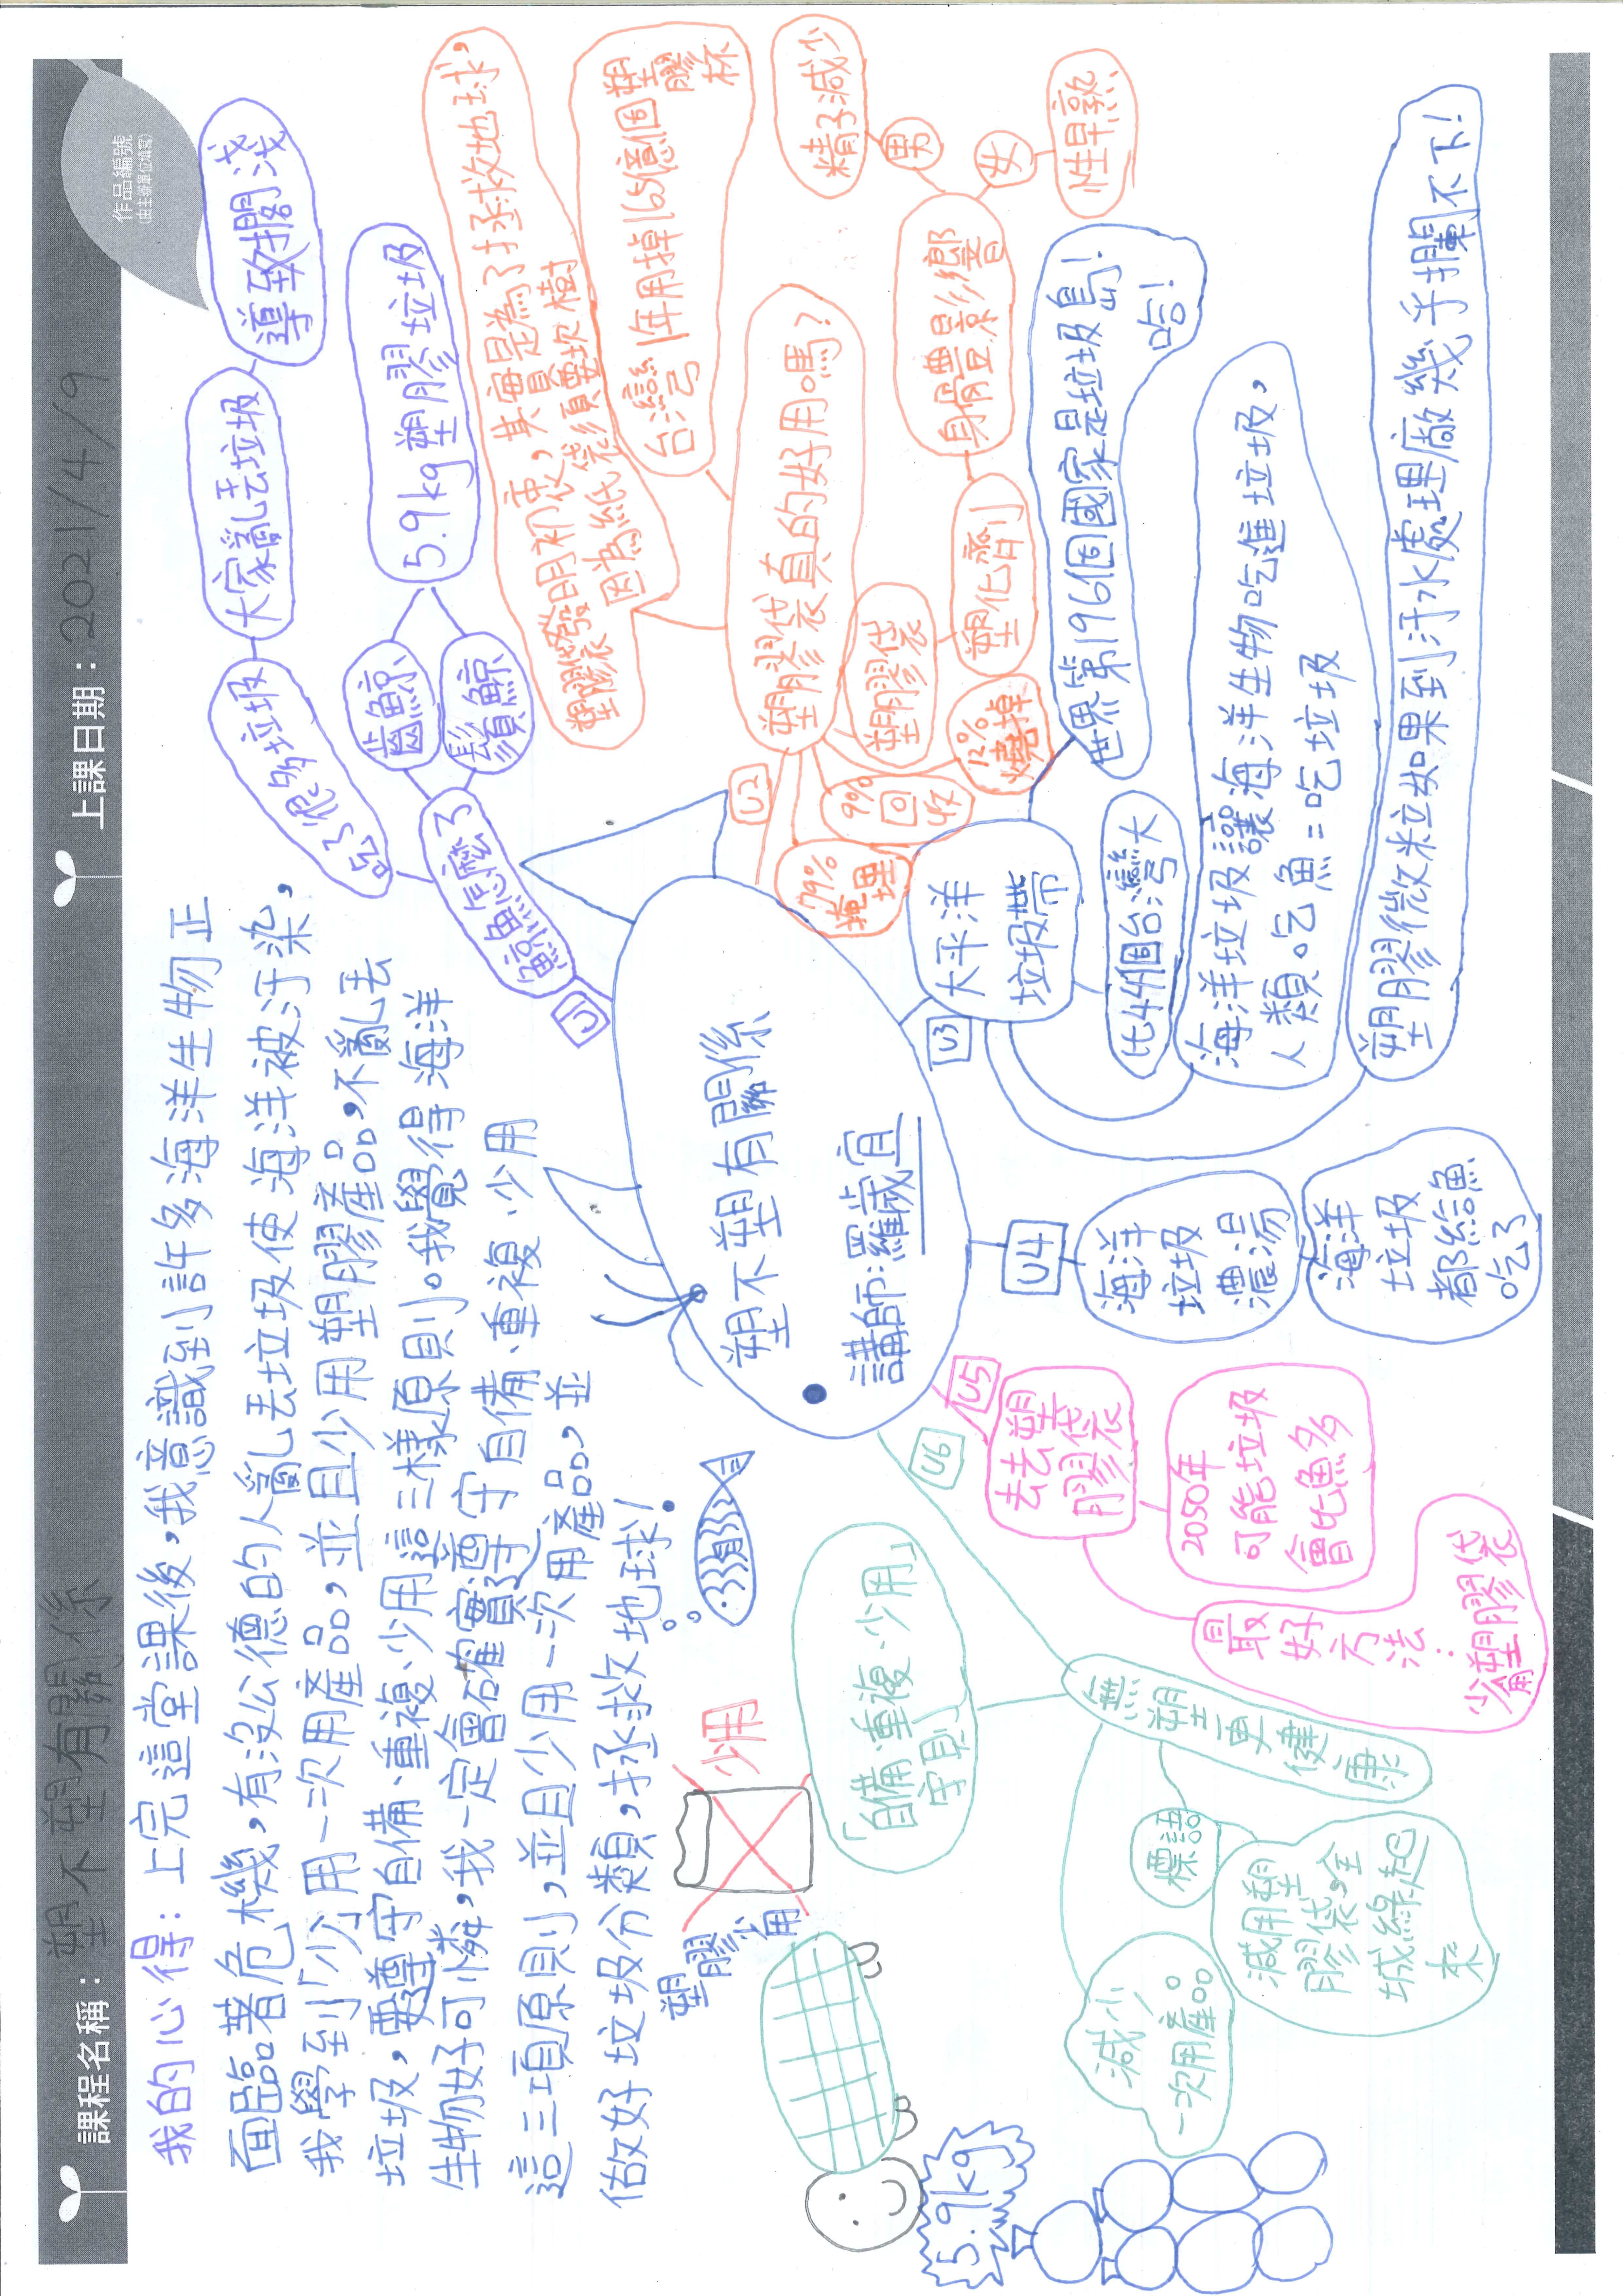 課程名稱：塑不塑有關係
上課日期：2021/4/9
作品編號
(由主辦單位填寫)
我的心得：上完這堂課後，我意識到許多海洋生物正
面臨著危機，有沒公德的人亂丟垃圾使海洋被汙染，
我學到「少」用一次用產品，並且少用塑膠產品，不亂丟
垃圾，要遵守自備、重複、少用這三樣原則。我覺得海洋
生物好可憐，我一定會確實遵守自備、重複、少用
這三項原則，並且少用一次用產品，並
做好垃圾分類，拯救地球！
塑不塑有關係
講師：羅歲宜
U1
鯨魚怎麼了
吃了很多垃圾
大家亂丟垃圾
導致擱淺
齒鯨
鬚鯨
5.9kg塑膠垃圾
U2
塑膠袋真的好用嗎？
塑膠袋發明初衷，其實是為了拯救地球，
因為紙袋須要砍樹
台灣1年用掉165億個塑膠杯
塑膠袋
塑化劑
身體豐影響
男
精子減少
女
性早熟
12%燒掉
9%回收
79%掩埋
U3
太平洋
垃圾帶
世界第196個國家是垃圾島！
哈！
比44個台灣大
海洋垃圾讓海洋生物吃進垃圾，
人類吃魚=吃垃圾
塑膠微粒如果到汙水處理廠幾乎攔不下！
U4
海洋
垃圾
濃湯
海洋
垃圾
都給魚
吃了
U5
去去塑
膠袋
2050年
可能垃圾
會比魚多
最好方法：
少用塑膠袋
U6
無塑更健康
「自備、重複、少用」
守則
標語
減用塑
膠袋，全
城綠起
來
減少
一次用產品
塑膠少用
少用
5.9kg